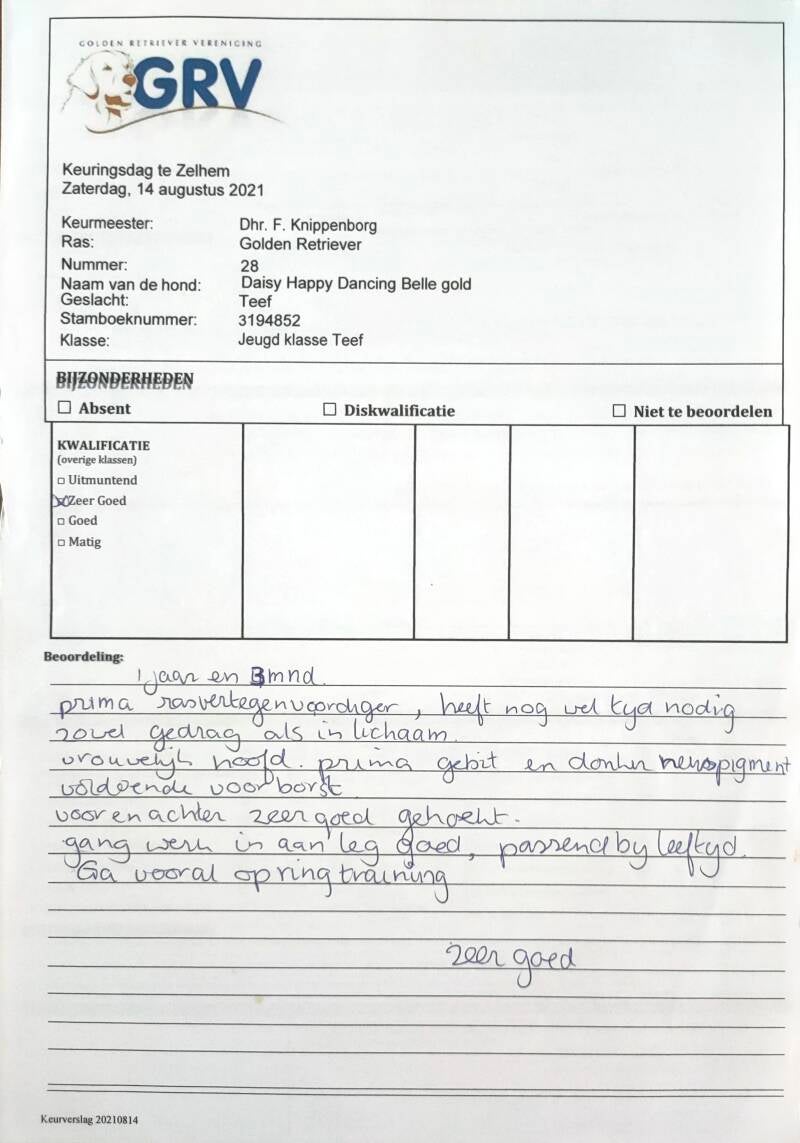 GOLDEN RETRIEVER VERENIGING
GRV
Keuringsdag te Zelhem
Zaterdag, 14 augustus 2021
Keurmeester: Dhr. F. Knippenborg
Ras: Golden Retriever
Nummer: 28
Naam van de hond: Daisy Happy Dancing Belle gold
Geslacht: Teef
Stamboeknummer: 3194852
Klasse: Jeugd klasse Teef
BIJZONDERHEDEN
☐ Absent ☐ Diskwalificatie ☐ Niet te beoordelen
KWALIFICATIE
(overige klassen)
☐ Uitmuntend
☒ Zeer Goed
☐ Goed
☐ Matig
Beoordeling:
1 jaar en 3 mnd.
prima rasvertegenwoordiger, heeft nog wel tyd nodig
zowel gedrag als in lichaam.
vrouwelijk hoofd. prima gebit en donker neuspigment
voldoende voorborst
voor en achter zeer goed gehoekt.
gang werk in aan leg goed, passend by leeftyd.
Ga vooral op ringtraining
zeer goed
Keurverslag 20210814